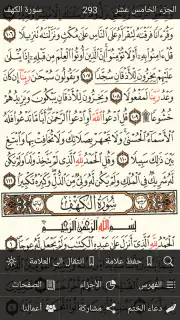 الجزء الخامس عشر 293 سورة الكهف
وَقُرْءَانًا فَرَقْنَٰهُ لِتَقْرَأَهُۥ عَلَى ٱلنَّاسِ عَلَىٰ مُكْثٍ وَنَزَّلْنَٰهُ تَنزِيلًا ١٠٦
قُلْ ءَامِنُوا۟ بِهِۦٓ أَوْ لَا تُؤْمِنُوٓا۟ إِنَّ ٱلَّذِينَ أُوتُوا۟ ٱلْعِلْمَ مِن قَبْلِهِۦٓ إِذَا يُتْلَىٰ
عَلَيْهِمْ يَخِرُّونَ لِلْأَذْقَانِ سُجَّدًا ١٠٧ وَيَقُولُونَ سُبْحَٰنَ رَبِّنَآ إِن كَانَ
وَعْدُ رَبِّنَا لَمَفْعُولًا ١٠٨ وَيَخِرُّونَ لِلْأَذْقَانِ يَبْكُونَ وَيَزِيدُهُمْ
خُشُوعًا ١٠٩ قُلِ ٱدْعُوا۟ ٱللَّهَ أَوِ ٱدْعُوا۟ ٱلرَّحْمَٰنَ أَيًّا مَّا تَدْعُوا۟ فَلَهُ
ٱلْأَسْمَآءُ ٱلْحُسْنَىٰ وَلَا تَجْهَرْ بِصَلَاتِكَ وَلَا تُخَافِتْ بِهَا وَٱبْتَغِ
بَيْنَ ذَٰلِكَ سَبِيلًا ١١٠ وَقُلِ ٱلْحَمْدُ لِلَّهِ ٱلَّذِى لَمْ يَتَّخِذْ وَلَدًا وَلَمْ يَكُن
لَّهُۥ شَرِيكٌ فِى ٱلْمُلْكِ وَلَمْ يَكُن لَّهُۥ وَلِىٌّ مِّنَ ٱلذُّلِّ وَكَبِّرْهُ تَكْبِيرًۢا ١١١
سُورَةُ الكَهْفِ
بِسْمِ ٱللَّهِ ٱلرَّحْمَٰنِ ٱلرَّحِيمِ
ٱلْحَمْدُ لِلَّهِ ٱلَّذِىٓ أَنزَلَ عَلَىٰ عَبْدِهِ ٱلْكِتَٰبَ وَلَمْ يَجْعَل لَّهُۥ عِوَجَا ١
حفظ علامة انتقال الى العلامة
الفهرس الأجزاء الصفحات
دعاء الختم مشاركة أعمالنا